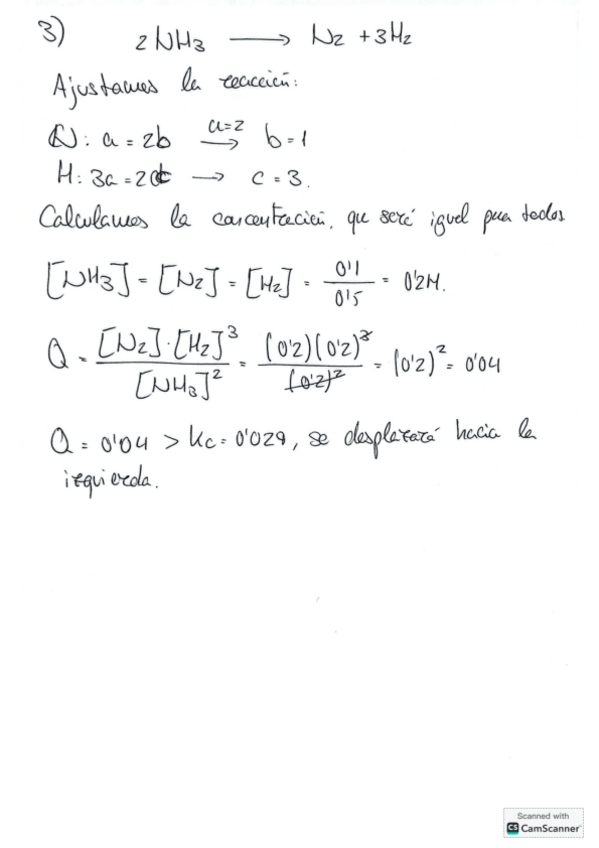 3) 2NH3 → N2 + 3H2
Ajustamos la reacción:
N: a = 2b a=2 → b = 1
H: 3a = 2c → c = 3.
Calculamos la concentración, que será igual para todos
[NH3] = [N2] = [H2] = 0'1 / 0'5 = 0'2M.
Q = [N2]·[H2]^3 / [NH3]^2 = (0'2)(0'2)^3 / (0'2)^2 = (0'2)^2 = 0'04
Q = 0'04 > Kc = 0'029, se desplazará hacia la
izquierda.
Scanned with
CS CamScanner